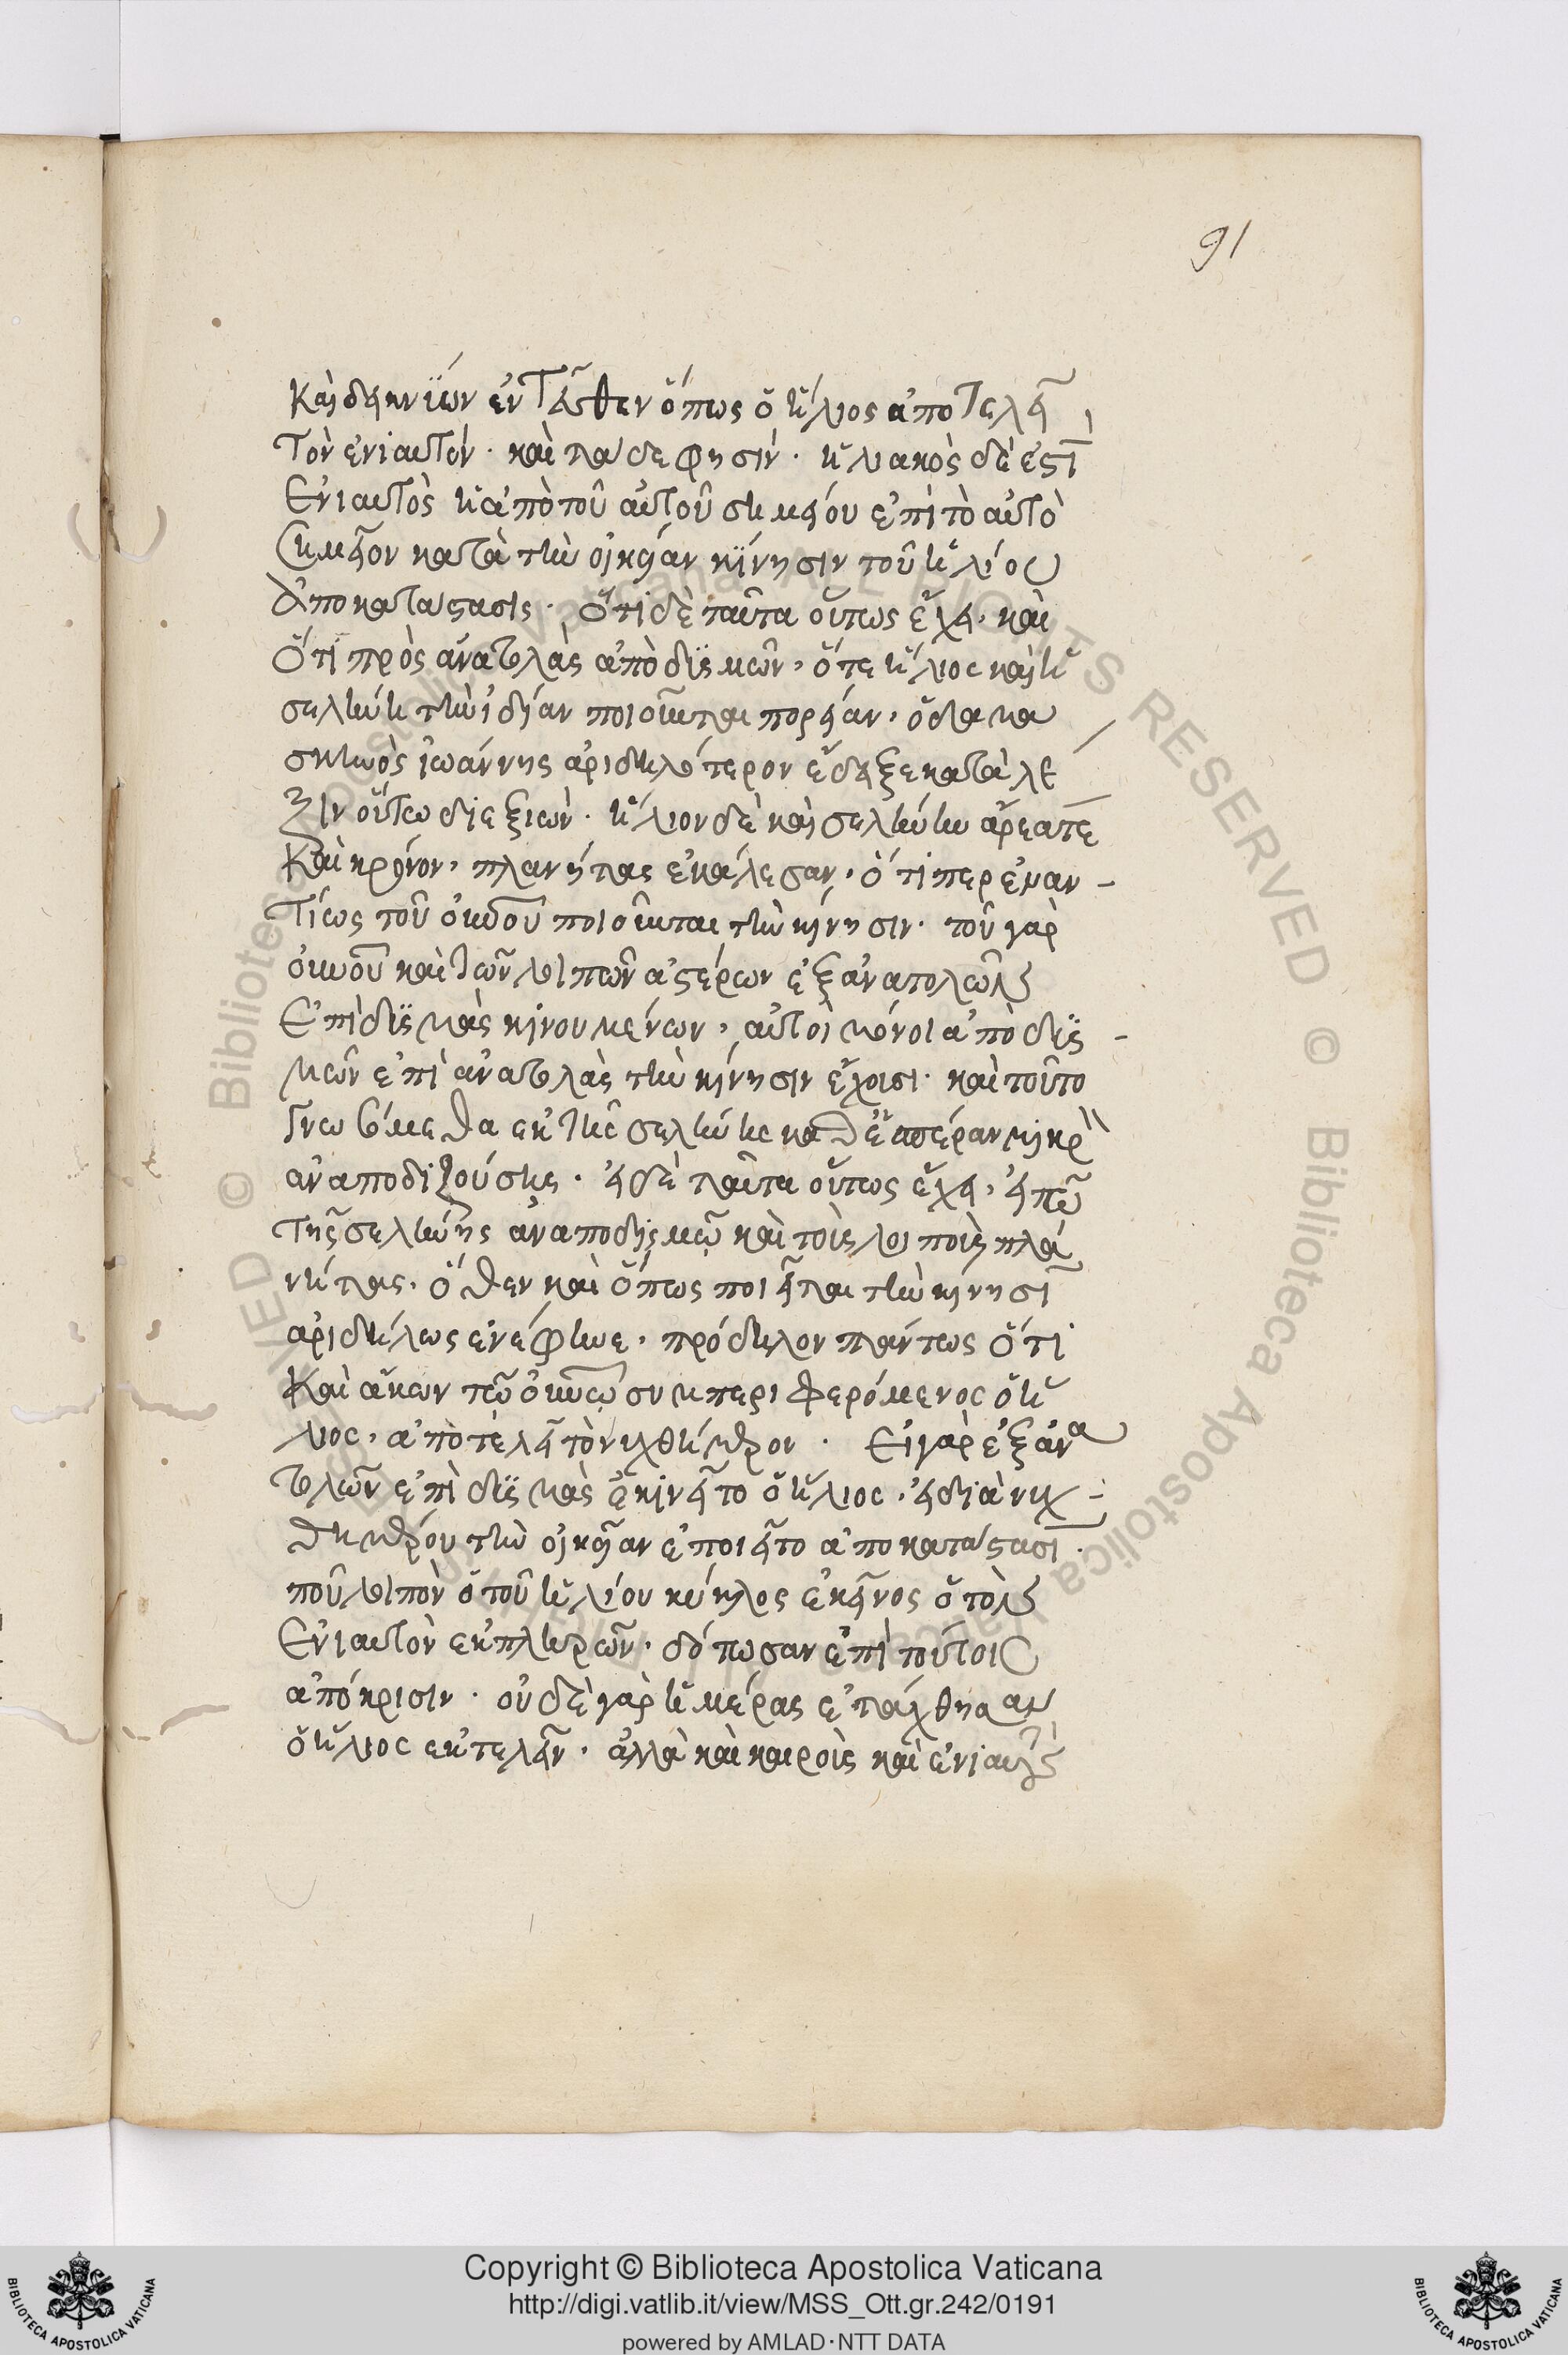 91
καὶ δεικνύων ἐντεῦθεν ὅπως ὁ ἥλιος ἀποτελεῖ
τὸν ἐνιαυτόν· καὶ τάδε φησίν· ἡλιακὸς δέ ἐστιν
ἐνιαυτὸς ἡ ἀπὸ τοῦ αὐτοῦ σημείου ἐπὶ τὸ αὐτὸ
σημεῖον κατὰ τὴν οἰκείαν κίνησιν τοῦ ἡλίου
ἀποκατάστασις· ὅτι δὲ ταῦτα οὕτως ἔχει, καὶ
ὅτι πρὸς ἀνατολὰς ἀπὸ δυσμῶν, ὅτε ἥλιος καὶ ἡ
σελήνη τὴν ἰδίαν ποιοῦνται πορείαν, ὁ δαμα
σκηνὸς ἰωάννης ἀριδηλότερον ἔδειξε κατὰ λέ
ξιν οὕτω διεξιών· ἥλιον δὲ καὶ σελήνην ἄρεα τε
καὶ κρόνον, πλανήτας ἐκάλεσαν, ὅτι περ ἐναν-
τίως τοῦ οὐνοῦ ποιοῦνται τὴν κίνησιν· τοῦ γὰρ
οὐνοῦ καὶ τῶν λοιπῶν ἀστέρων ἐξ ἀνατολῶν
ἐπὶ δυσμὰς κινουμένων, αὐτοὶ μόνοι ἀπὸ δυσ-
μῶν ἐπὶ ἀνατολὰς τὴν κίνησιν ἔχουσι· καὶ τοῦτο
γνωσόμεθα ἐκ τῆς σελήνης καθ' ἑσπέραν μικρὸν
ἀναποδιζούσης· εἰ δὲ ταῦτα οὕτως ἔχει, εἰ τῷ
τῆς σελήνης ἀναποδισμῷ καὶ τοὺς λοιποὺς πλα
νήτας, ὅθεν καὶ ὅπως ποιεῖται τὴν κίνησιν
ἀριδήλως ἐνέφηνε, πρόδηλον πάντως ὅτι
καὶ ἄκων τῷ οὐνῷ συμπεριφερόμενος ὁ ἥ
λιος, ἀποτελεῖ τὸ νυχθήμερον· εἰ γὰρ ἐξ ἀνα
τολῶν ἐπὶ δυσμὰς ἐκινεῖτο ὁ ἥλιος, εἰ διὰ νυχ-
θημέρου τὴν οἰκείαν ἐποιεῖτο ἀποκατάστασιν·
ποῦ λοιπὸν ὁ τοῦ ἡλίου κύκλος ἐκεῖνος ὁ τὸν
ἐνιαυτὸν ἐκπληρῶν· δότωσαν ἐπὶ τούτοις
ἀπόκρισιν· οὐδὲ γὰρ ἡμέρας ἐτάχθη
ὁ ἥλιος ἐκτελεῖν· ἀλλὰ καὶ καιροὺς καὶ ἐνιαυτούς
Copyright © Biblioteca Apostolica Vaticana
http://digi.vatlib.it/view/MSS_Ott.gr.242/0191
powered by AMLAD·NTT DATA
BIBLIOTECA APOSTOLICA VATICANA
BIBLIOTECA APOSTOLICA VATICANA